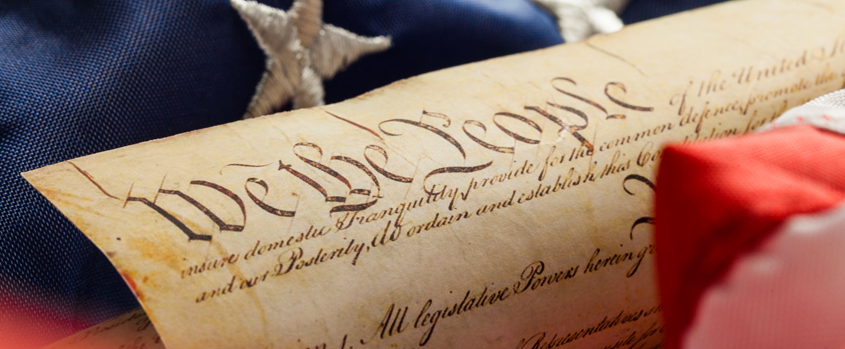 We the People of the United
insure domestic Tranquility, provide for the common defence, promote the
and our Posterity, do ordain and establish this
All legislative Powers herein
Representatives